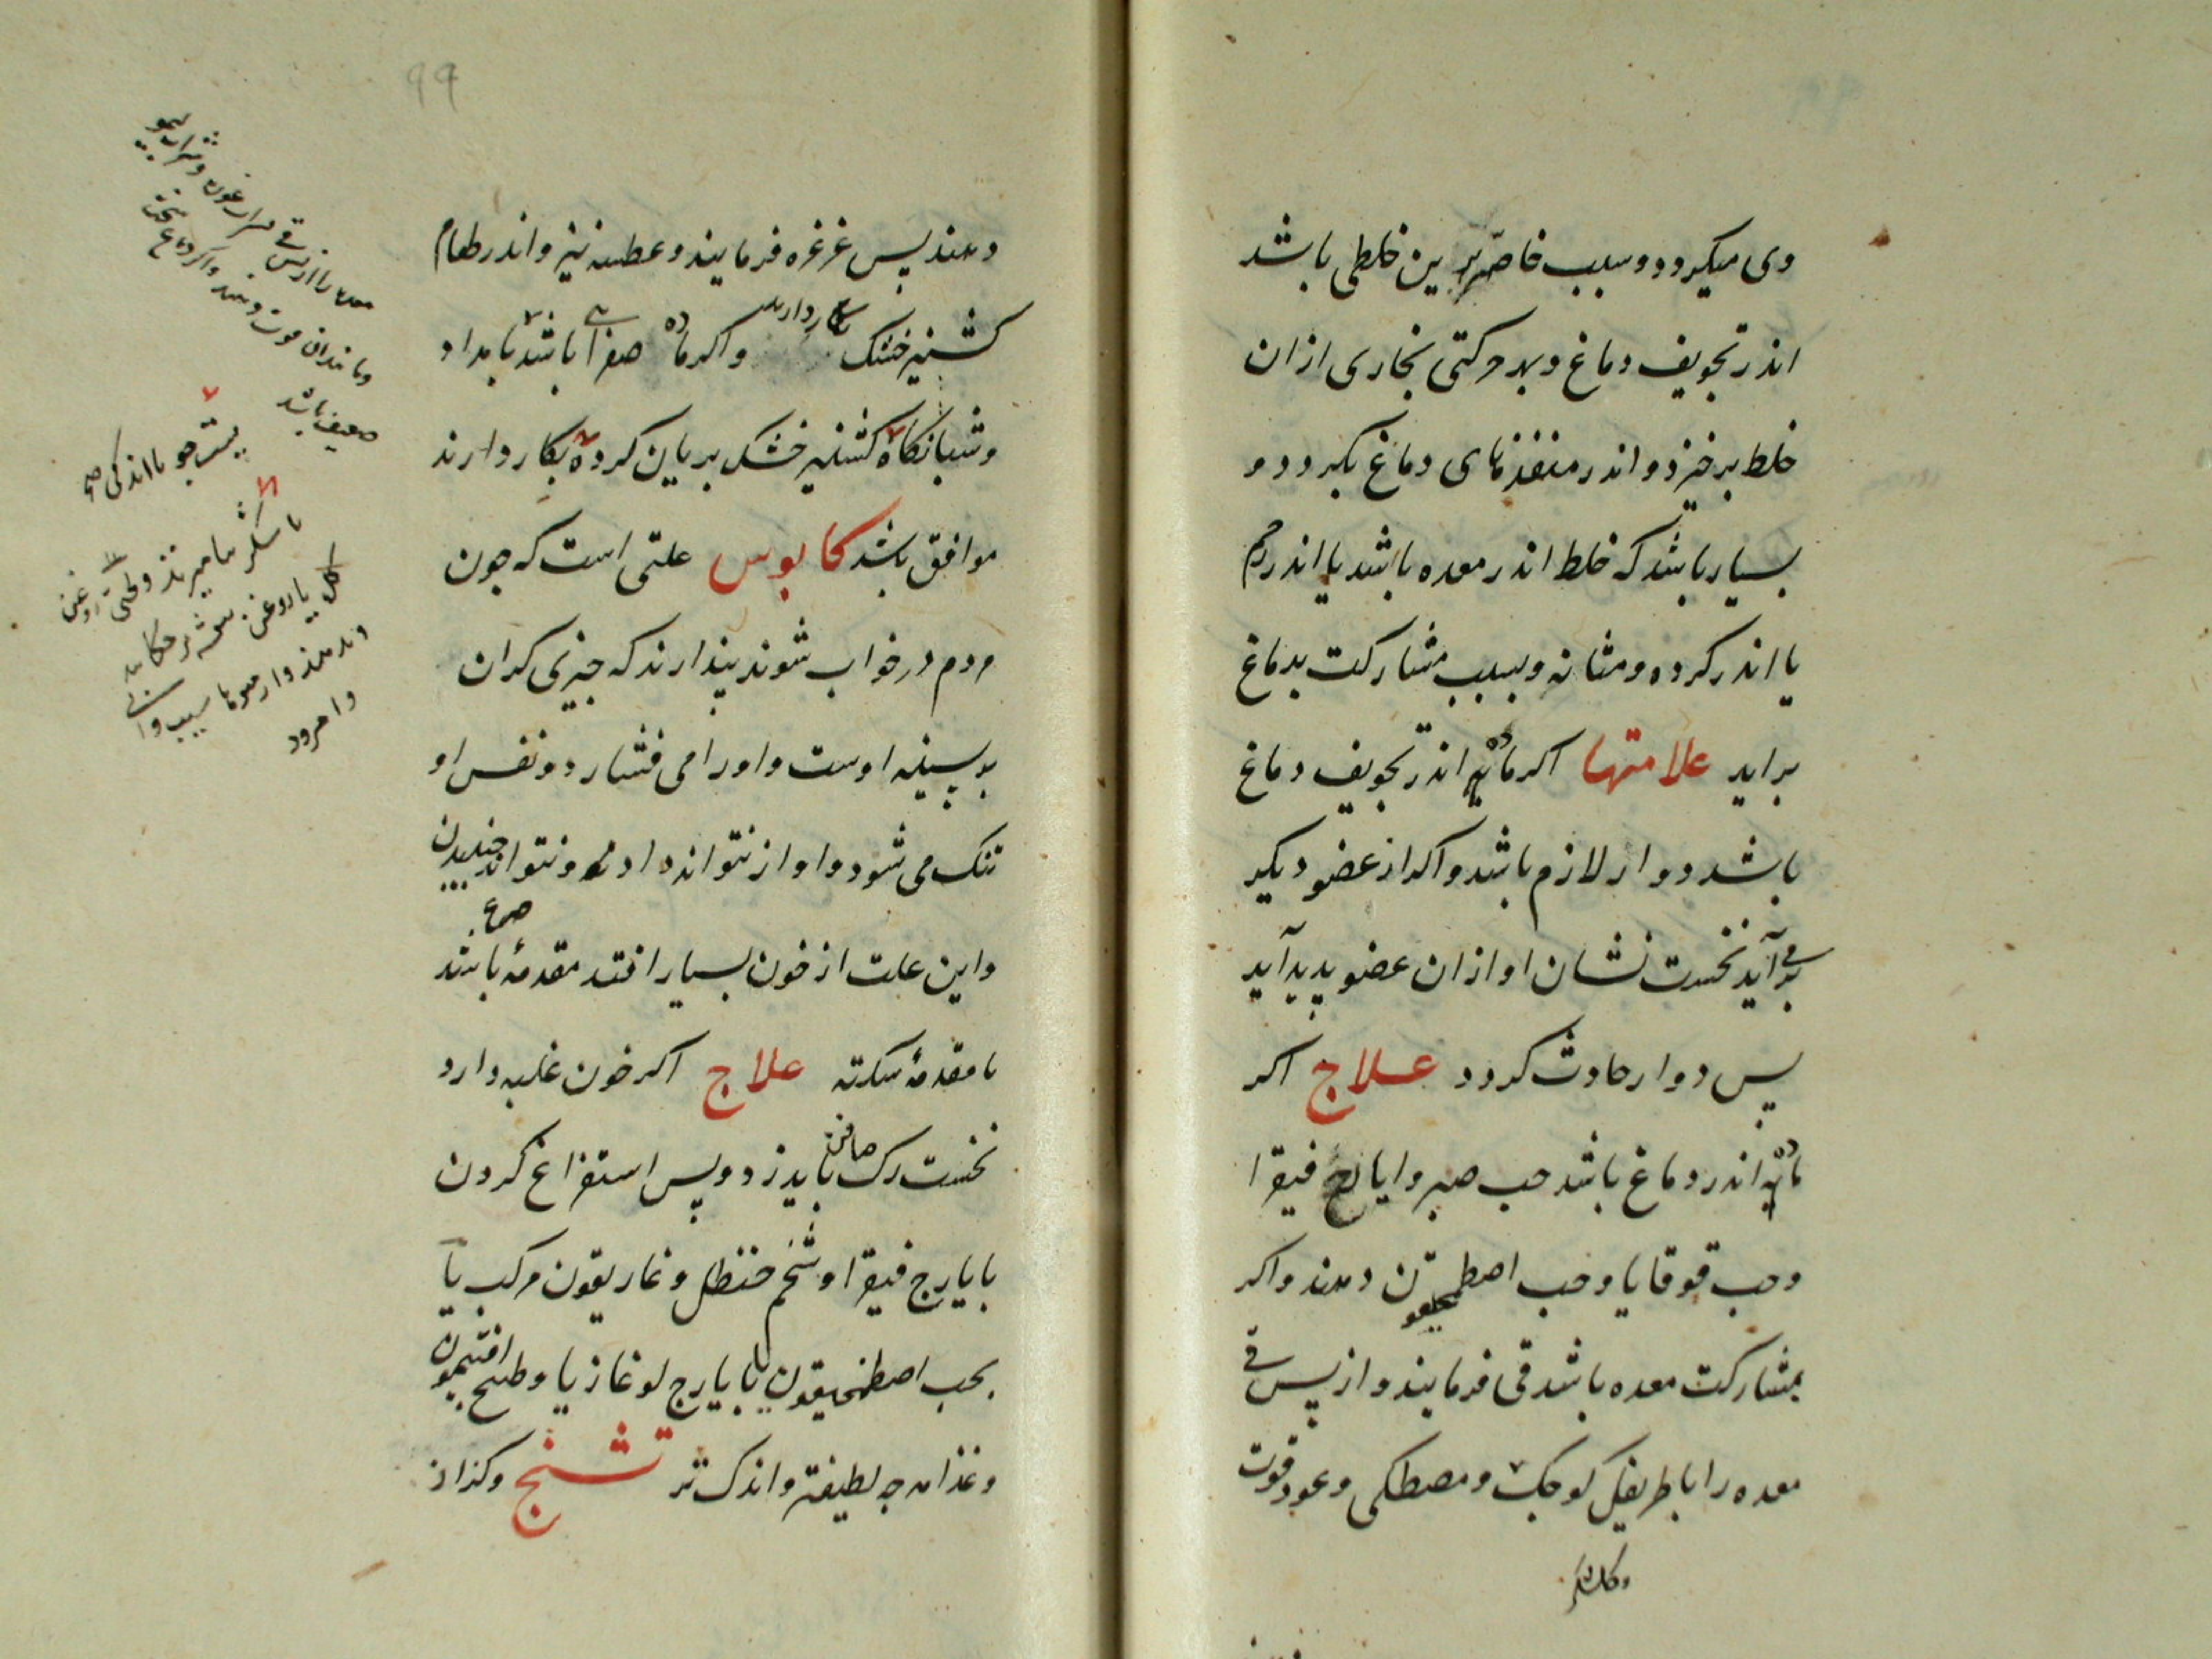 وی میکردد وسبب خاصه ترین خلطی باشد
اندر تجویف دماغ وبهر حرکتی بخاری ازان
خلط برخیزد و اندر منفذهای دماغ بکردد و
بسیار باشد که خلط اندر معده باشد یا اندر رحم
یا اندر کرده ومثانه وبسبب مشارکت بدماغ
براید علامتها اکر ماده اندر تجویف دماغ
باشد دوار لازم باشد واکر از عضو دیکر
برمی آید نخست نشان او ازان عضو پدید آید
پس دوار حادث کردد علاج اکر
ماده اندر دماغ باشد حب صبر وایارج فیقرا
وحب قوقایا وحب اصطمحیقون دهند واکر
بمشارکت معده باشد قی فرمایند واز پس قی
معده را باطریفل کوجک ومصطکی وعود قوت
دهند پس غرغره فرمایند وعطسه نیز واندر طعام
کشنیز خشک بکار دارند واکر ماده صفرایی باشد بامداد
وشبانکاه کشنیز خشک بریان کرده بکار دارند
موافق باشد کابوس علتی است که جون
مردم در خواب شوند پندارند که جیزی کران
بر سینه اوست واورا می فشارد ونفس او
تنک می شود واواز نتواند داد ونتواند جنبیدن
واین علت از خون بسیار افتد مقدمهٔ صرع باشد
یا مقدمهٔ سکته علاج اکر خون غلبه دارد
نخست رک صافن باید زد وپس استفراغ کردن
بایارج فیقرا وشحم حنظل وغاریقون مرکب یا
بحب اصطمخیقون یا بایارج لوغاذیا وطبیخ افتیمون
وغذا هرجه لطیفتر واندک تر تشنج وکزاز
99
معده را از پس قی شراب غوره وشراب لیمو
ضعیف باشد
پست جو با اندکی
با شکر
کل یا روغن بنفشه
وامرود